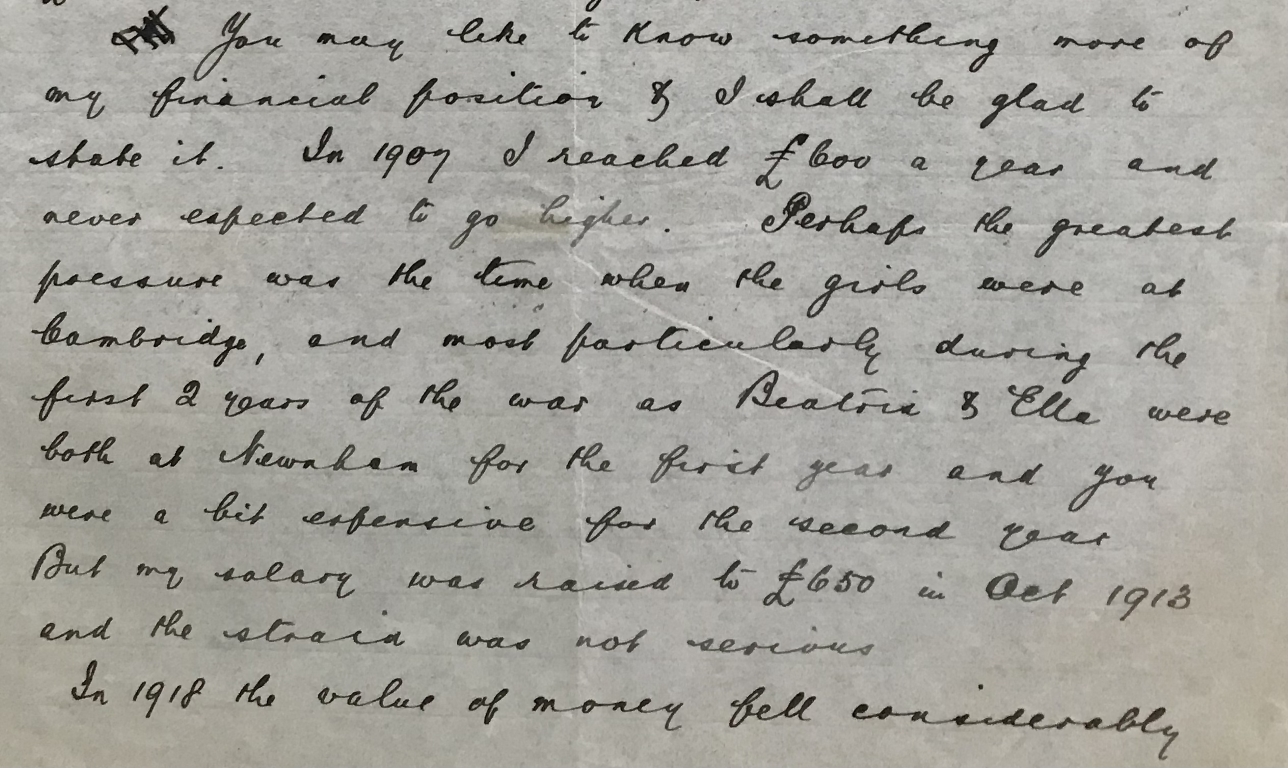 You may like to know something more of
my financial position & I shall be glad to
state it. In 1907 I reached £600 a year and
never expected to go higher. Perhaps the greatest
pressure was the time when the girls were at
Cambridge, and most particularly during the
first 2 years of the war as Beatrix & Ella were
both at Newnham for the first year and you
were a bit expensive for the second year
But my salary was raised to £650 in Oct 1913
and the strain was not serious
In 1918 the value of money fell considerably